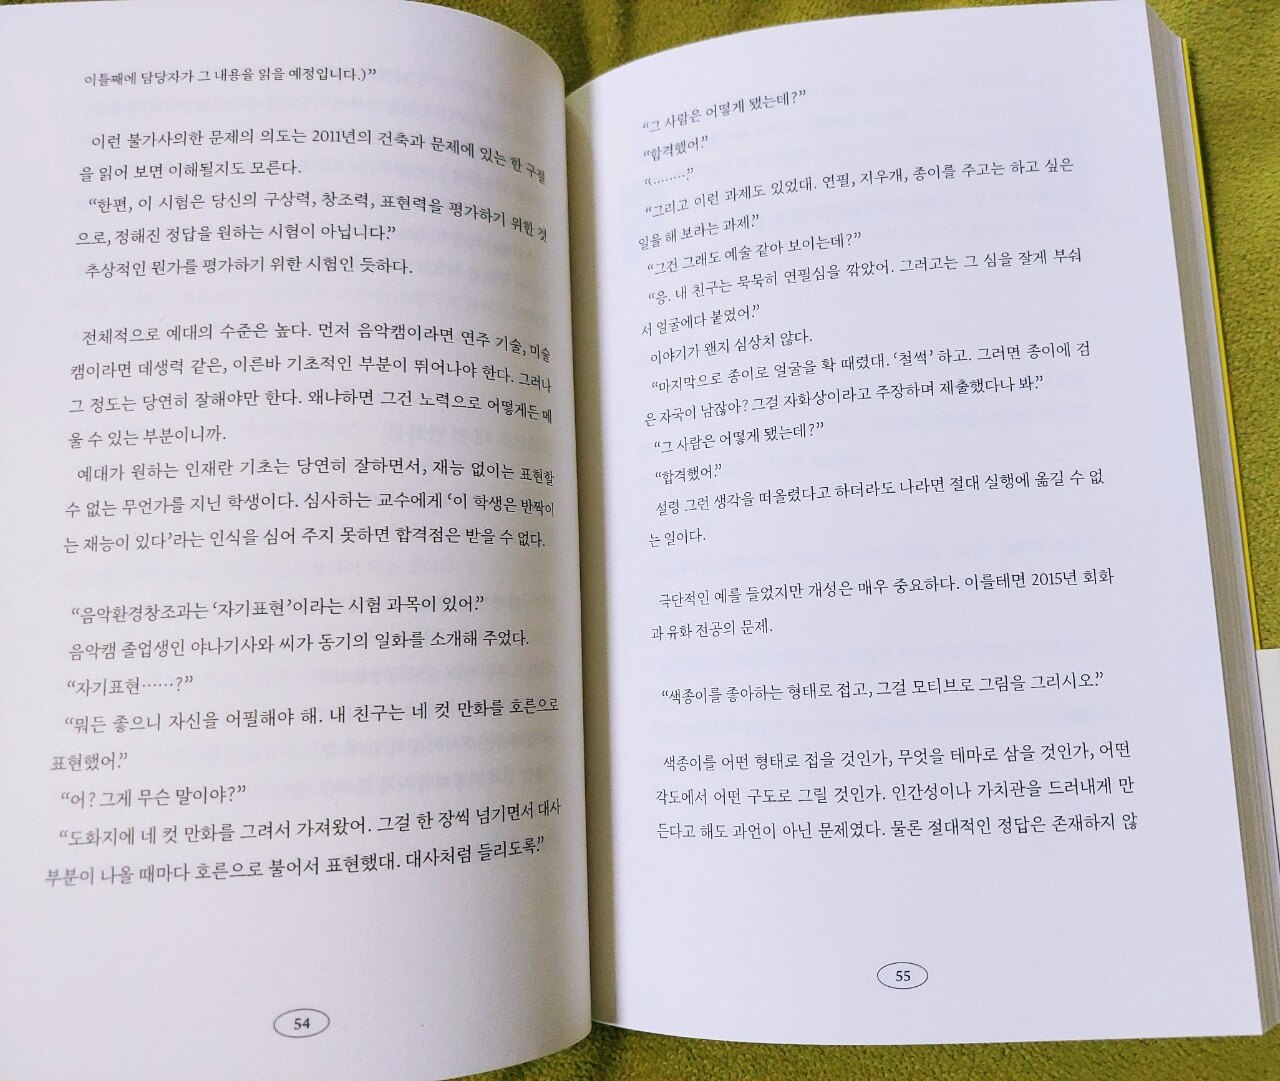 이틀째에 담당자가 그 내용을 읽을 예정입니다.)”
이런 불가사의한 문제의 의도는 2011년의 건축과 문제에 있는 한 구절
을 읽어 보면 이해될지도 모른다.
“한편, 이 시험은 당신의 구상력, 창조력, 표현력을 평가하기 위한 것
으로, 정해진 정답을 원하는 시험이 아닙니다.”
추상적인 뭔가를 평가하기 위한 시험인 듯하다.
전체적으로 예대의 수준은 높다. 먼저 음악캠이라면 연주 기술, 미술
캠이라면 데생력 같은, 이른바 기초적인 부분이 뛰어나야 한다. 그러나
그 정도는 당연히 잘해야만 한다. 왜냐하면 그건 노력으로 어떻게든 메
울 수 있는 부분이니까.
예대가 원하는 인재란 기초는 당연히 잘하면서, 재능 없이는 표현할
수 없는 무언가를 지닌 학생이다. 심사하는 교수에게 ‘이 학생은 반짝이
는 재능이 있다’라는 인식을 심어 주지 못하면 합격점은 받을 수 없다.
“음악환경창조과는 ‘자기표현’이라는 시험 과목이 있어.”
음악캠 졸업생인 야나기사와 씨가 동기의 일화를 소개해 주었다.
“자기표현……?”
“뭐든 좋으니 자신을 어필해야 해. 내 친구는 네 컷 만화를 호른으로
표현했어.”
“어? 그게 무슨 말이야?”
“도화지에 네 컷 만화를 그려서 가져왔어. 그걸 한 장씩 넘기면서 대사
부분이 나올 때마다 호른으로 불어서 표현했대. 대사처럼 들리도록.”
54
“그 사람은 어떻게 됐는데?”
“합격했어.”
“………”
“그리고 이런 과제도 있었대. 연필, 지우개, 종이를 주고는 하고 싶은
일을 해 보라는 과제.”
“그건 그래도 예술 같아 보이는데?”
“응. 내 친구는 묵묵히 연필심을 깎았어. 그러고는 그 심을 잘게 부숴
서 얼굴에다 붙였어.”
이야기가 왠지 심상치 않다.
“마지막으로 종이로 얼굴을 확 때렸대. ‘철썩’ 하고. 그러면 종이에 검
은 자국이 남잖아? 그걸 자화상이라고 주장하며 제출했다나 봐.”
“그 사람은 어떻게 됐는데?”
“합격했어.”
설령 그런 생각을 떠올렸다고 하더라도 나라면 절대 실행에 옮길 수 없
는 일이다.
극단적인 예를 들었지만 개성은 매우 중요하다. 이를테면 2015년 회화
과 유화 전공의 문제.
“색종이를 좋아하는 형태로 접고, 그걸 모티브로 그림을 그리시오.”
색종이를 어떤 형태로 접을 것인가, 무엇을 테마로 삼을 것인가, 어떤
각도에서 어떤 구도로 그릴 것인가. 인간성이나 가치관을 드러내게 만
든다고 해도 과언이 아닌 문제였다. 물론 절대적인 정답은 존재하지 않
55